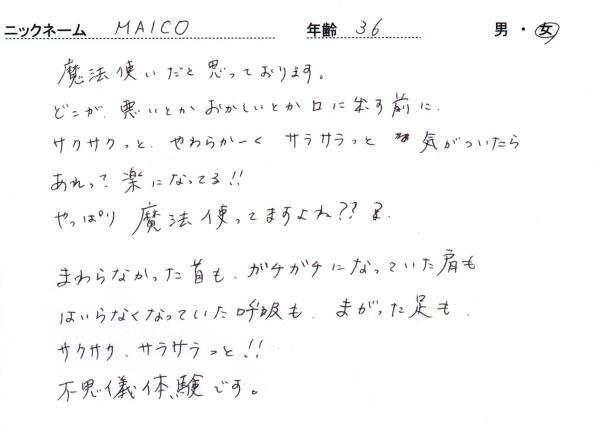 ニックネーム MAICO 年齢 36 男・女
魔法使いだと思っております。
どこが、悪いとかおかしいとか口に出す前に、
サクサクっと、やわらかーく サラサラっと 気がついたら
あれって? 楽になってる!!
やっぱり 魔法使ってますよね??
まわらなかった首も、ガチガチになっていた肩も
はいらなくなっていた呼吸も、まがった足も、
サクサク、サラサラっと!!
不思儀体験です。